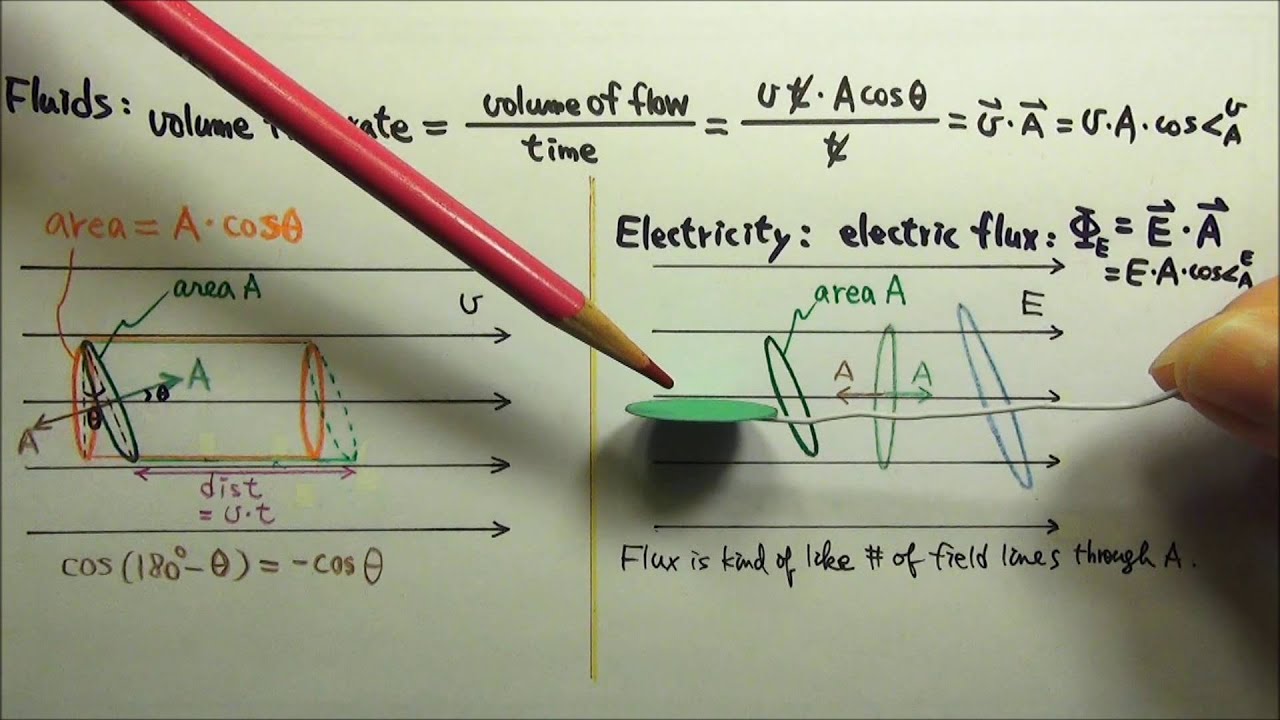 Fluids: volume rate = volume of flow / time = v t · A cos θ / t = v⃗ · A⃗ = v · A · cos∠ᵛ_A
area = A · cosθ
area A
v
A
θ
A
θ
dist
= v · t
cos (180° - θ) = - cos θ
Electricity: electric flux: Φ_E = E⃗ · A⃗
= E · A · cos∠ᴱ_A
area A
E
A
A
Flux is kind of like # of field lines through A.